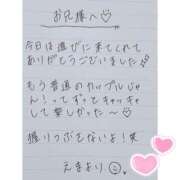 お兄様へ♡
今日は遊びに来てくれて
ありがとうございました
もう普通のカップルじゃ
ん!ってずっとキャッキャ
して楽しかった〜♡
握りつぶさないよ!笑
えまより